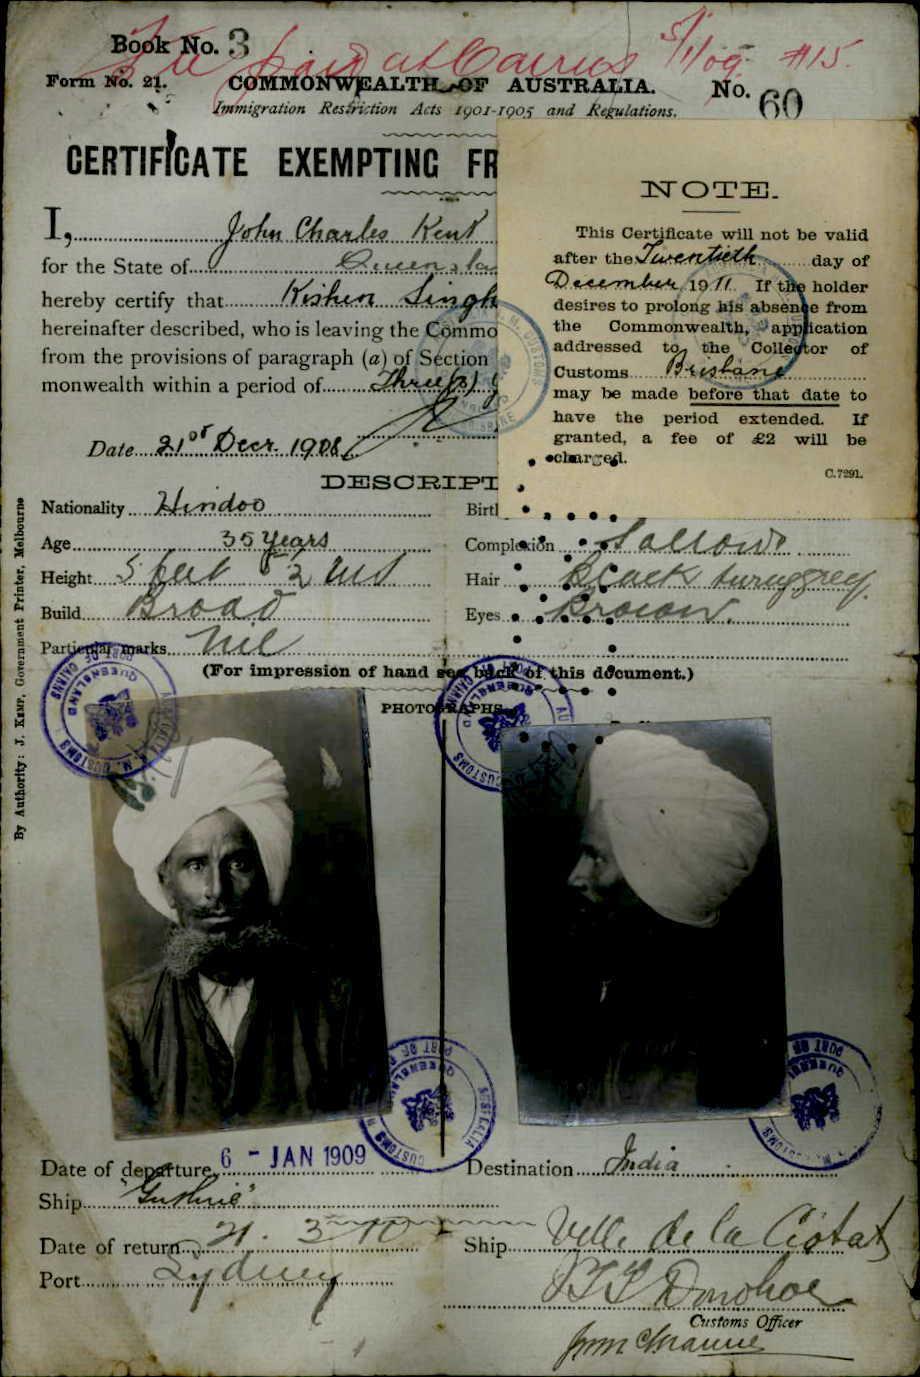 Fee paid at Cairns 5/1/09 #15.
Book No. 3
Form No. 21. COMMONWEALTH OF AUSTRALIA. No. 60
Immigration Restriction Acts 1901-1905 and Regulations.
CERTIFICATE EXEMPTING FR
I, John Charles Kent
for the State of Queensla
hereby certify that Kishen Singh
hereinafter described, who is leaving the Commo
from the provisions of paragraph (a) of Section
monwealth within a period of Three(3) y
Date 21st Decr. 1908
NOTE.
This Certificate will not be valid
after the Twentieth day of
December 1911. If the holder
desires to prolong his absence from
the Commonwealth, application
addressed to the Collector of
Customs Brisbane
may be made before that date to
have the period extended. If
granted, a fee of £2 will be
charged.
C.7291.
DESCRIPTI
Nationality Hindoo Birth
Age 35 years Complexion Sallow
Height 5 feet 2 ins Hair Black turng grey.
Build Broad Eyes Brown.
Particular marks Nil
(For impression of hand see back of this document.)
PHOTOGRAPHS.
By Authority: J. KEMP, Government Printer, Melbourne
Date of departure 6 - JAN 1909 Destination India
Ship "Guthrie"
Date of return 21. 3 10 Ship Ville de la Ciotat
Port Sydney Donohoe
Customs Officer